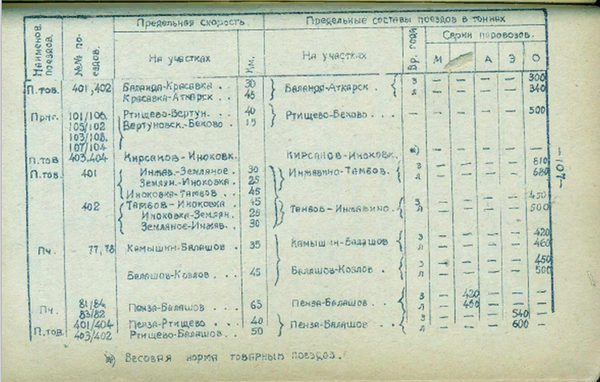 Наименов. поездов. №№ поездов. Предельная скорость. Предельные составы поездов в тоннах
На участках Км. На участках Вр. года Серии паровозов.
М А Э О
П.тов. 401,402 Баланда-Красавка 30 Баланда-Аткарск . з — — — — 300
Красавка-Аткарск . 45 л — — — — 340
Приг. 101/106. Ртищево-Вертун. . 40 Ртищево-Беково . . — — — — — 500
105/102 Вертуновск.-Беково . 15
103/108.
107/104
П.тов 403,404 Кирсанов-Иноковк. Кирсанов-Иноковк.
П.тов. 401 Инжав.-Земляное 30 Инжавино-Тамбов. з — — — — 610
Землян.-Иноковка 25 л — — — — 680
Иноковка-Тамбов . 45
402 Тамбов-Иноковка 45 Тамбов-Инжавино з — — — — 450
Иноковка-Землян. 25 л — — — — 500
Земляное-Инжав. 30
-401-
Пч. 77,78 Камышин-Балашов 35 Камышин-Балашов з — — — — 420
л — — — — 460
Балашов-Козлов . . 45 Балашов-Козлов . з — — — — 450
л — — — — 500
Пч. 81/84 Пенза-Балашов . . . 65 Пенза-Балашов . з — 420 — — —
83/82 л — 460 — — —
П.тов. 401/404 Пенза-Ртищево . . . 40 Пенза-Балашов . з — — — 540 —
403/402 Ртищево-Балашов . 50 л — — — 600 —
ж) Весовая норма товарным поездов.